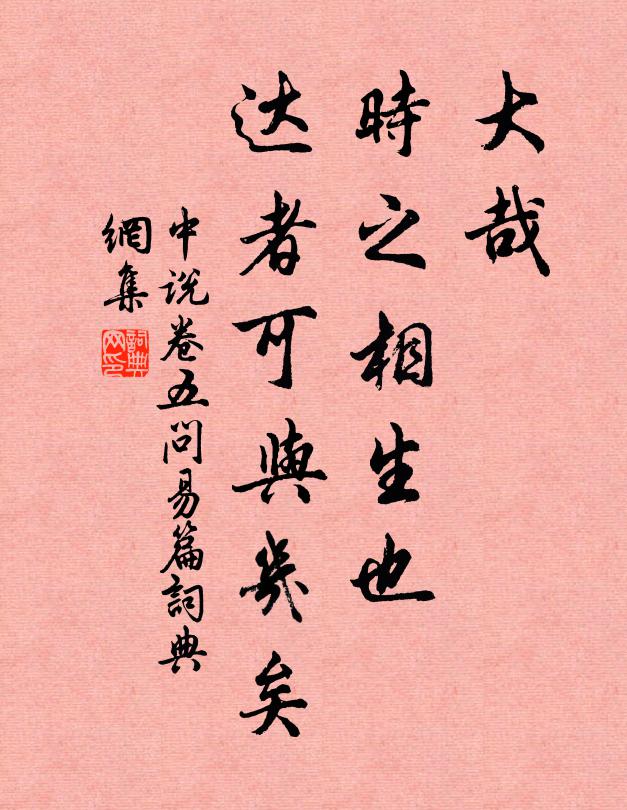 大哉
時之相生也
达者可與幾矣
中说卷五問易篇詞典
網集
詞典
网印